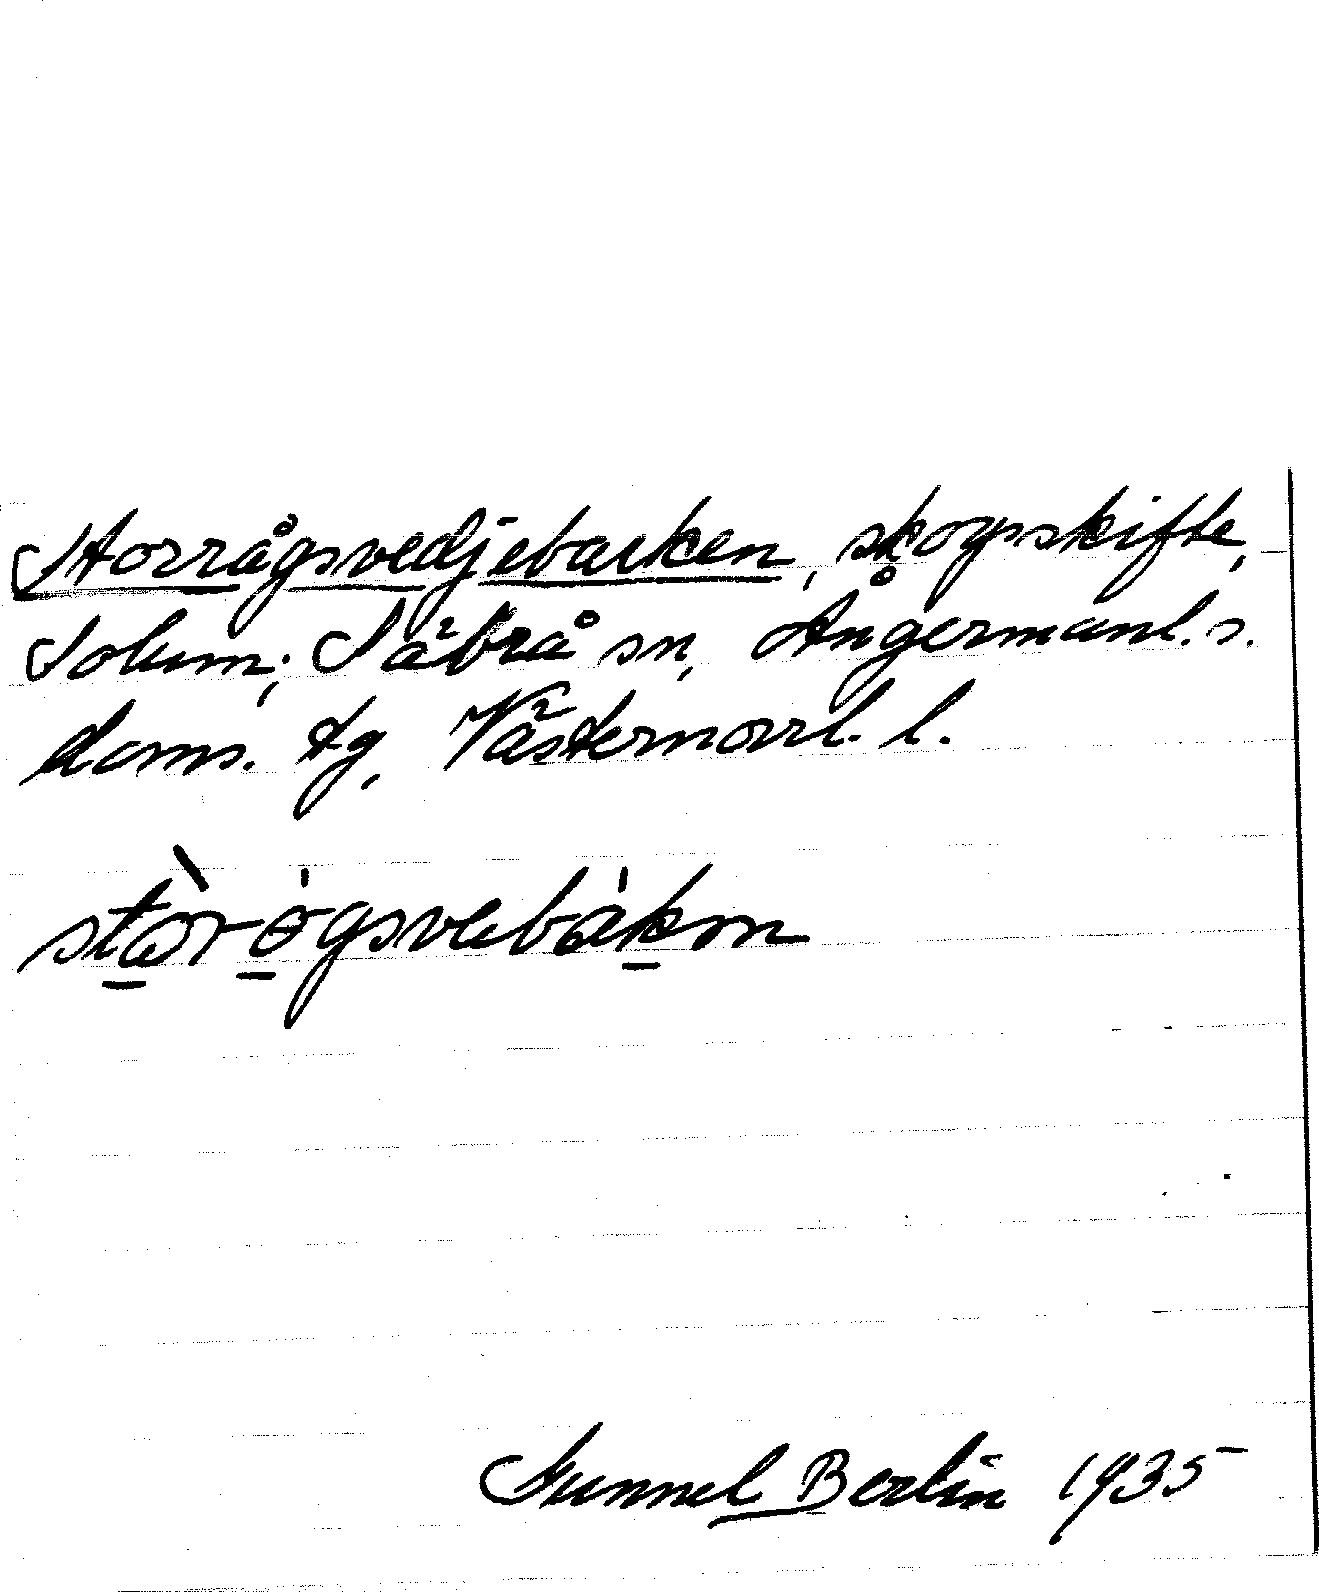 Storrågsvedjebacken, skogsskifte,
Solum, Säbrå sn, Ångermanl. s.
doms. tg, Västernorrl. l.
Gunnel Berlin 1935